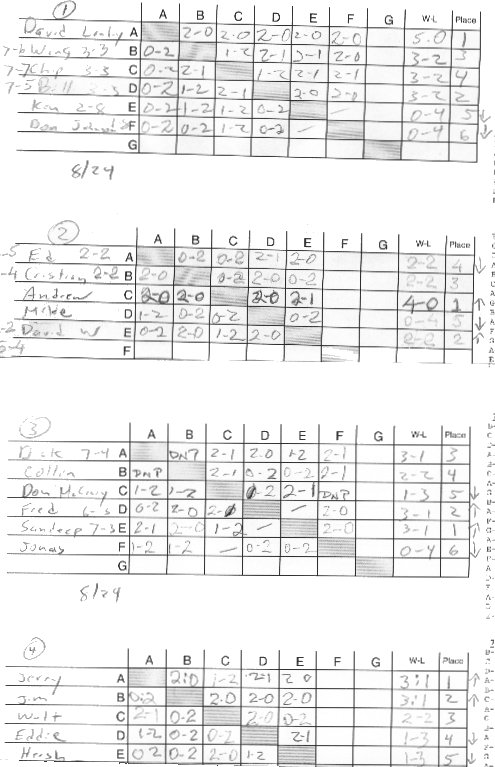 ①
A B C D E F G W-L Place
David A 2-0 2-0 2-0 2-0 2-0 5-0 1
Wing 3-3 B 0-2 1-2 2-1 2-1 2-0 3-2 3
7-7 Chip 3-3 C 0-2 2-1 1-2 2-1 2-1 3-2 4
7-5 Bill D 0-2 1-2 2-1 2-0 2-0 3-2 2
Ken 2-8 E 0-2 1-2 1-2 0-2 — 0-4 5 ↓
Don F 0-2 0-2 1-2 0-2 — 0-4 6 ↓
G
8/24
②
A B C D E F G W-L Place
Ed 2-2 A 0-2 0-2 2-1 2-0 2-2 4 ↓
Cristian 2-2 B 2-0 0-2 2-0 0-2 2-2 3
Andrew C 2-0 2-0 2-0 2-1 4-0 1 ↑
Mike D 1-2 0-2 0-2 0-2 0-4 5 ↓
David W E 0-2 2-0 1-2 2-0 2-2 2 ↑
F
③
A B C D E F G W-L Place
Dick 7-4 A DNP 2-1 2-0 1-2 2-1 3-1 3
Collin B DNP 2-1 0-2 0-2 2-1 2-2 4
Don C 1-2 1-2 0-2 2-1 DNP 1-3 5 ↓
Fred D 0-2 2-0 2-0 — 2-0 3-1 2 ↑
Sandeep 7-3 E 2-1 2-0 1-2 — 2-0 3-1 1 ↑
Jonas F 1-2 1-2 — 0-2 0-2 0-4 6 ↓
G
8/24
④
A B C D E F G W-L Place
Jerry A 2:0 1-2 2-1 2-0 3:1 1 ↑
Jim B 0:2 2-0 2-0 2-0 3:1 2 ↑
Walt C 2-1 0-2 2-0 0-2 2-2 3
Eddie D 1-2 0-2 0-2 2-1 1-3 4 ↓
Hersh E 0-2 0-2 2-0 1-2 1-3 5 ↓